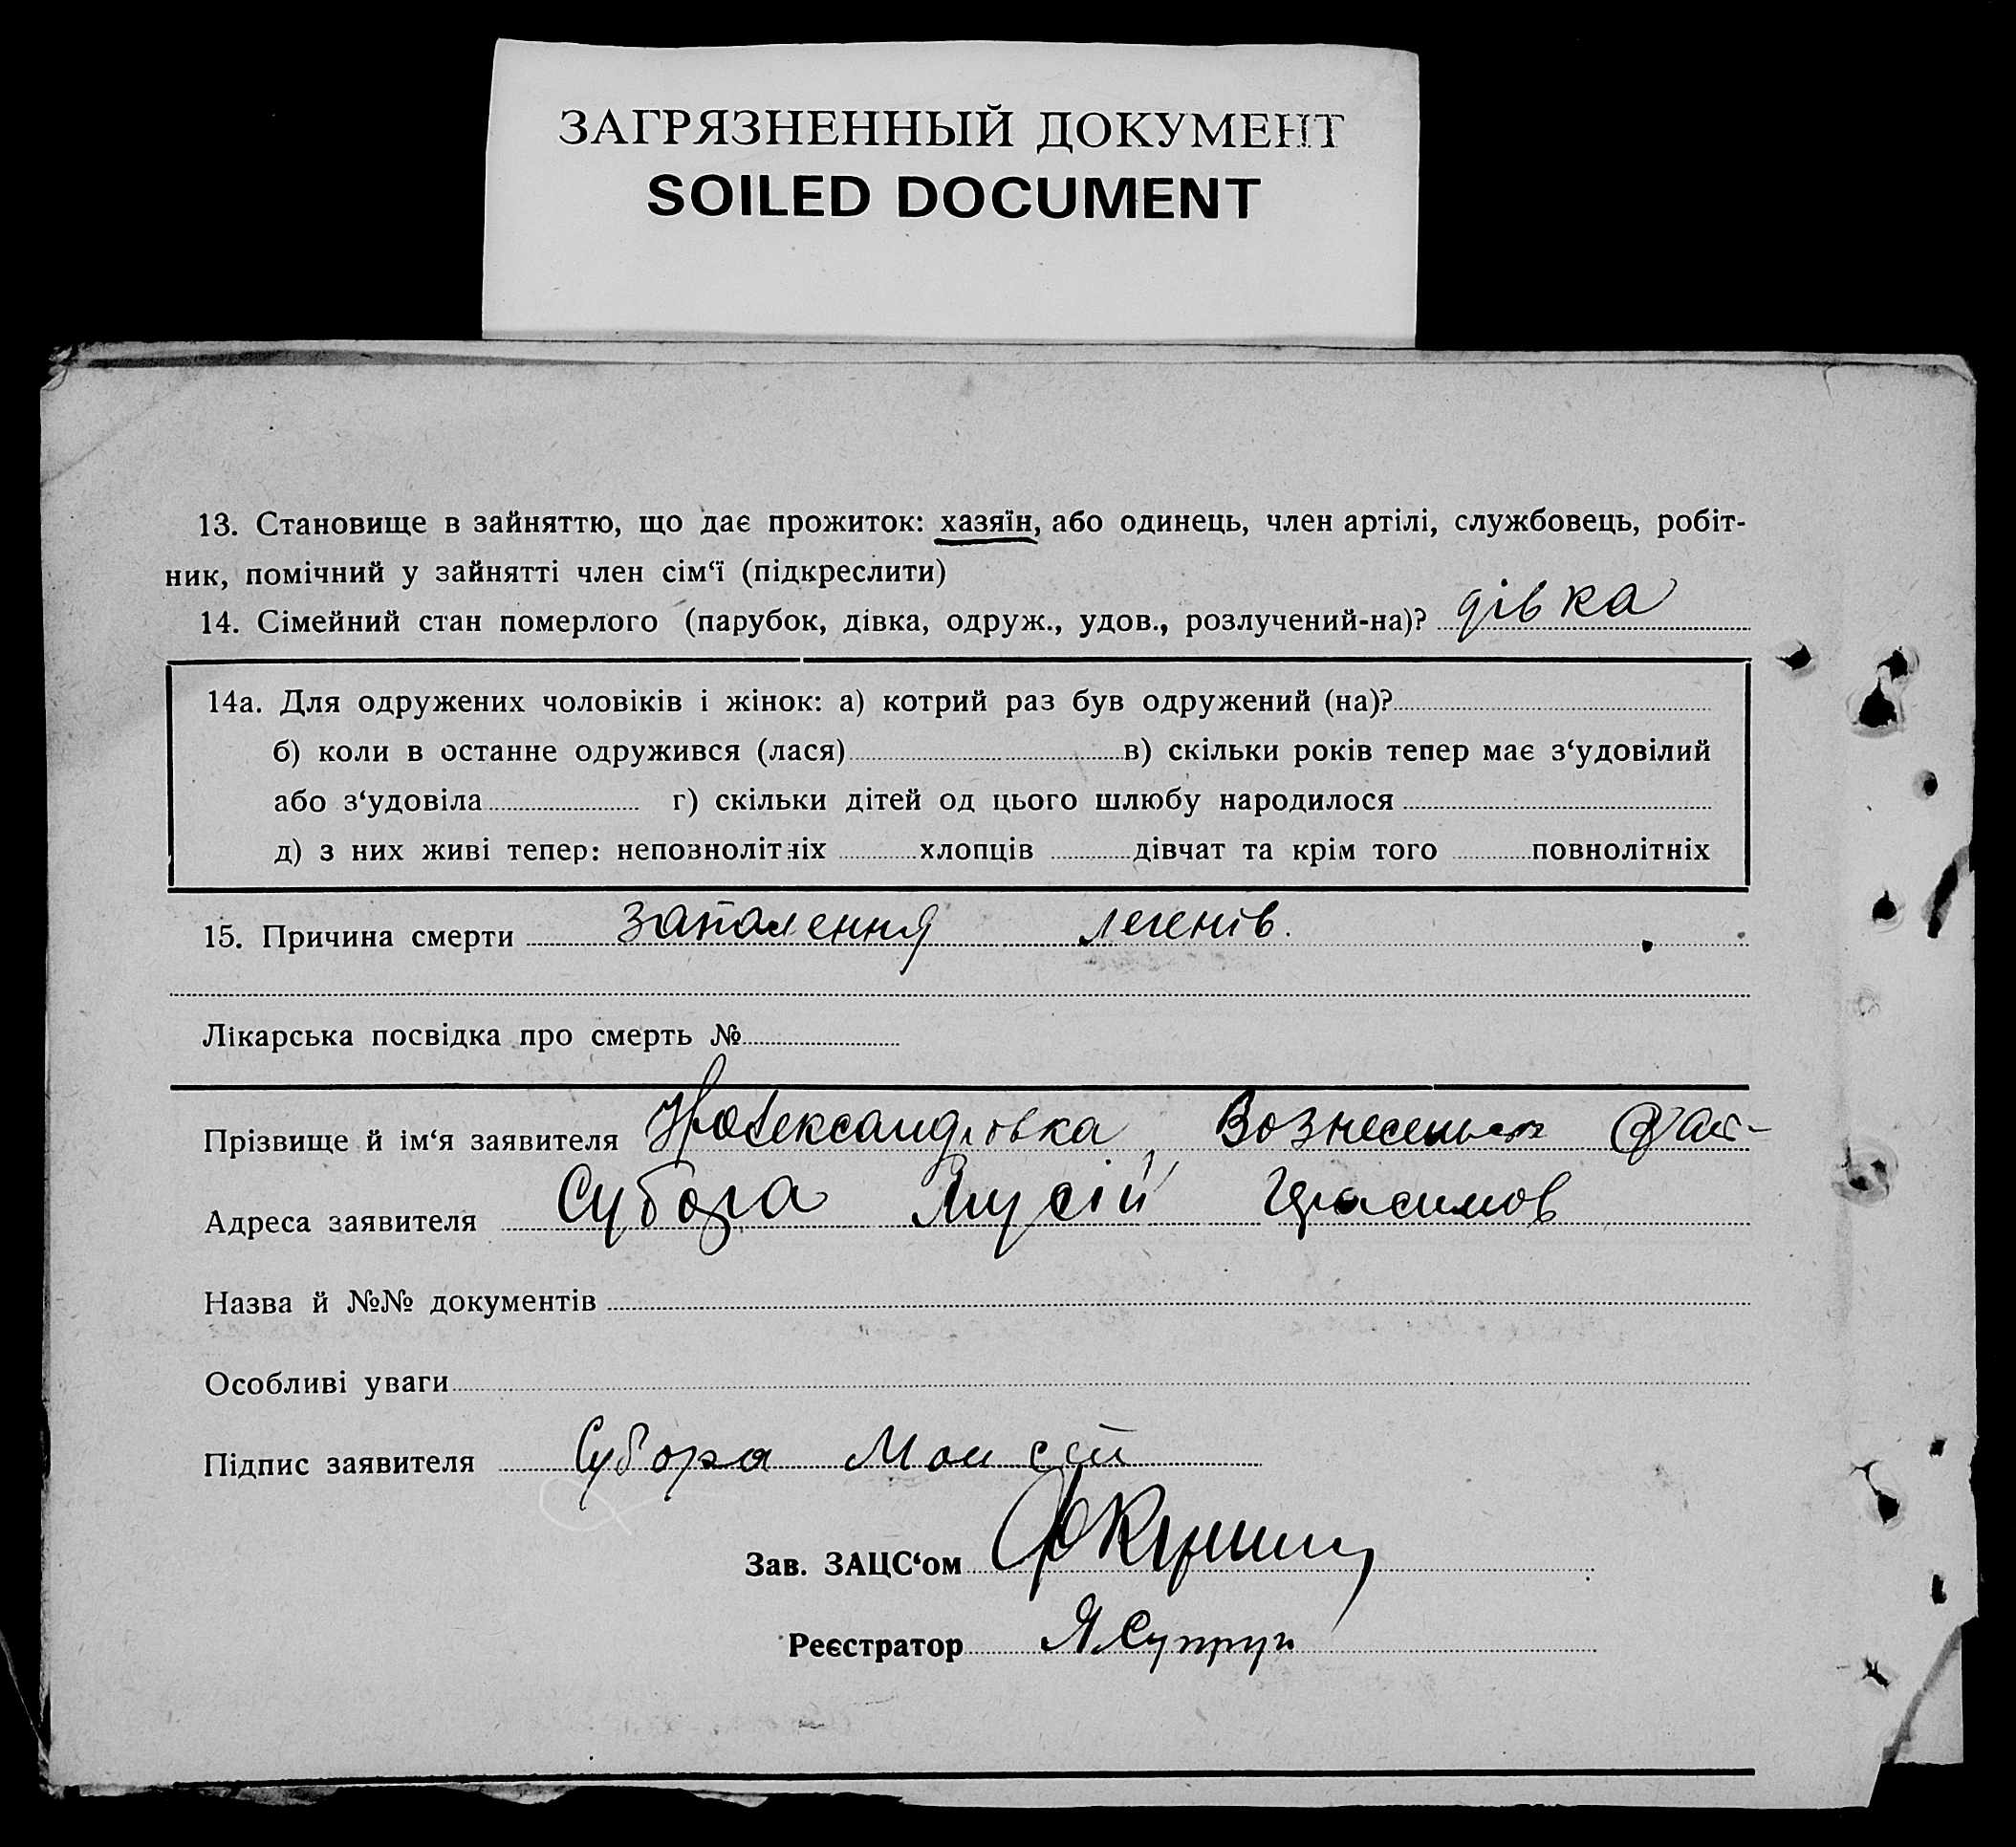 ЗАГРЯЗНЕННЫЙ ДОКУМЕНТ
SOILED DOCUMENT
13. Становище в зайняттю, що дає прожиток: хазяїн, або одинець, член артілі, службовець, робіт-
ник, помічний у зайнятті член сім‘ї (підкреслити)
14. Сімейний стан померлого (парубок, дівка, одруж., удов., розлучений-на)? дівка
14а. Для одружених чоловіків і жінок: а) котрий раз був одружений (на)?
б) коли в останне одружився (лася) в) скільки років тепер має з‘удовілий
або з‘удовіла г) скільки дітей од цього шлюбу народилося
д) з них живі тепер: неповнолітніх хлопців дівчат та крім того повнолітніх
15. Причина смерти запалення легенів.
Лікарська посвідка про смерть №
Прізвище й ім‘я заявителя
Адреса заявителя Субота Мусій Герасимов
Назва й №№ документів
Особливі уваги
Підпис заявителя Мойсей
Зав. ЗАЦС‘ом
Реєстратор Я Супрун